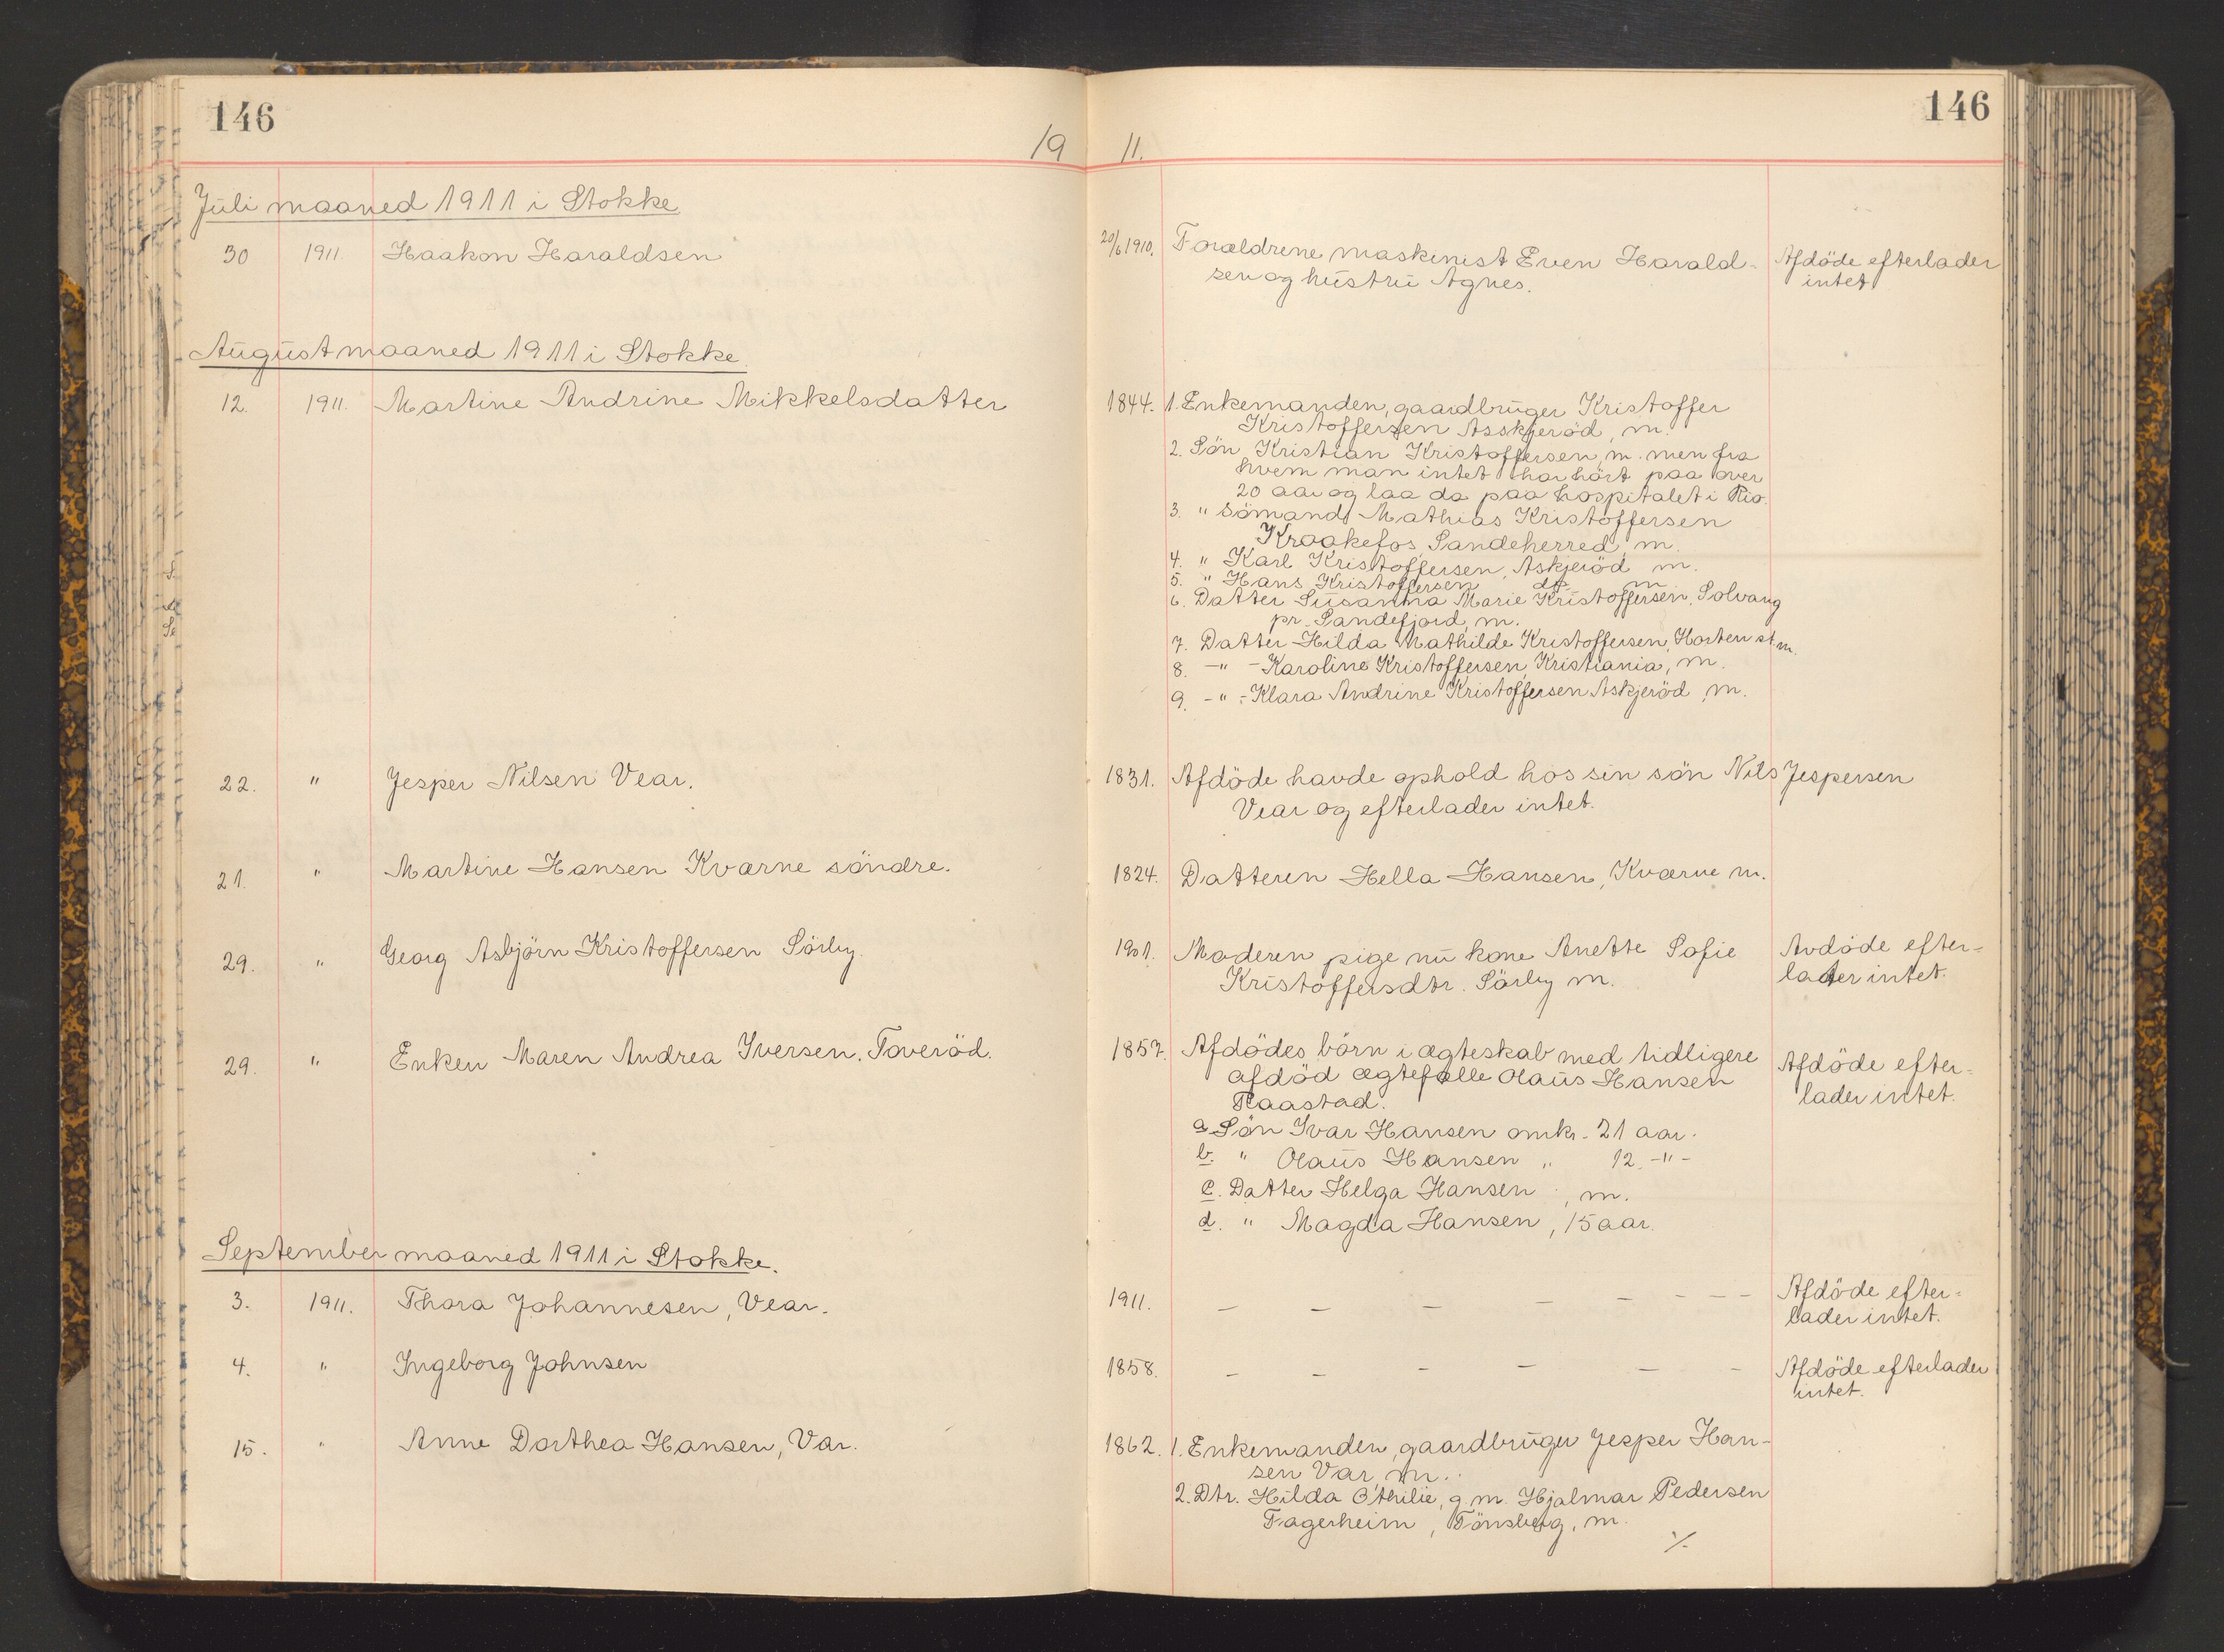 146
146
19 11.
Juli maaned 1911 i Stokke
30 1911. Haakon Haraldsen 20/6 1910. Forældrene maskinist Even Harald- Afdöde efterlader
sen og hustru Agnes. intet
August maaned 1911 i Stokke
12. 1911. Martine Andrine Mikkelsdatter 1844. 1. Enkemanden, gaardbruger Kristoffer
Kristoffersen Asskjeröd, m.
2. Sön Kristian Kristoffersen, m. men fra
hvem man intet har hört paa over
20 aar og laa da paa hospitalet i Rio.
3. " Sömand Mathias Kristoffersen
Kraakefos, Sandeherred, m.
4. " Karl Kristoffersen, Askjeröd m.
5. " Hans Kristoffersen do m
6. Datter Susanna Marie Kristoffersen, Solvang
pr. Sandefjord, m.
7. Datter Hilda Mathilde Kristoffersen, Horten st. m.
8. -"- Karoline Kristoffersen, Kristiania, m.
9. -"- Klara Andrine Kristoffersen Askjeröd, m.
22. " Jesper Nilsen Vear. 1831. Afdöde havde ophold hos sin sön Nils Jespersen
Vear og efterlader intet.
21. " Martine Hansen Kværne söndre. 1824. Datteren Hella Hansen, Kværne m.
29. " Georg Asbjörn Kristoffersen Sörby. 1901. Moderen pige nu kone Anette Sofie Avdöde efter-
Kristoffersdtr. Sörby m. lader intet.
29. " Enken Maren Andrea Iversen. Taveröd. 1857. Afdödes börn i ægteskab med tidligere Afdöde efter-
afdöd ægtefælle Olaus Hansen lader intet.
Raastad.
a Sön Ivar Hansen omkr. 21 aar.
b. " Olaus Hansen " 12. -"-
c. Datter Helga Hansen, m.
d. " Magda Hansen, 15 aar.
September maaned 1911 i Stokke.
3. 1911. Thora Johannesen, Vear. 1911. — — — — — — — — Afdöde efter-
lader intet.
4. " Ingeborg Johnsen 1858. — — — — — — Afdöde efterlader
intet.
15. " Anne Dorthea Hansen, Var. 1862. 1. Enkemanden, gaardbruger Jesper Han-
sen Var, m..
2. Dtr. Hilda Othilie, g. m. Hjalmar Pedersen
Fagerheim, Tönsberg, m.
./.